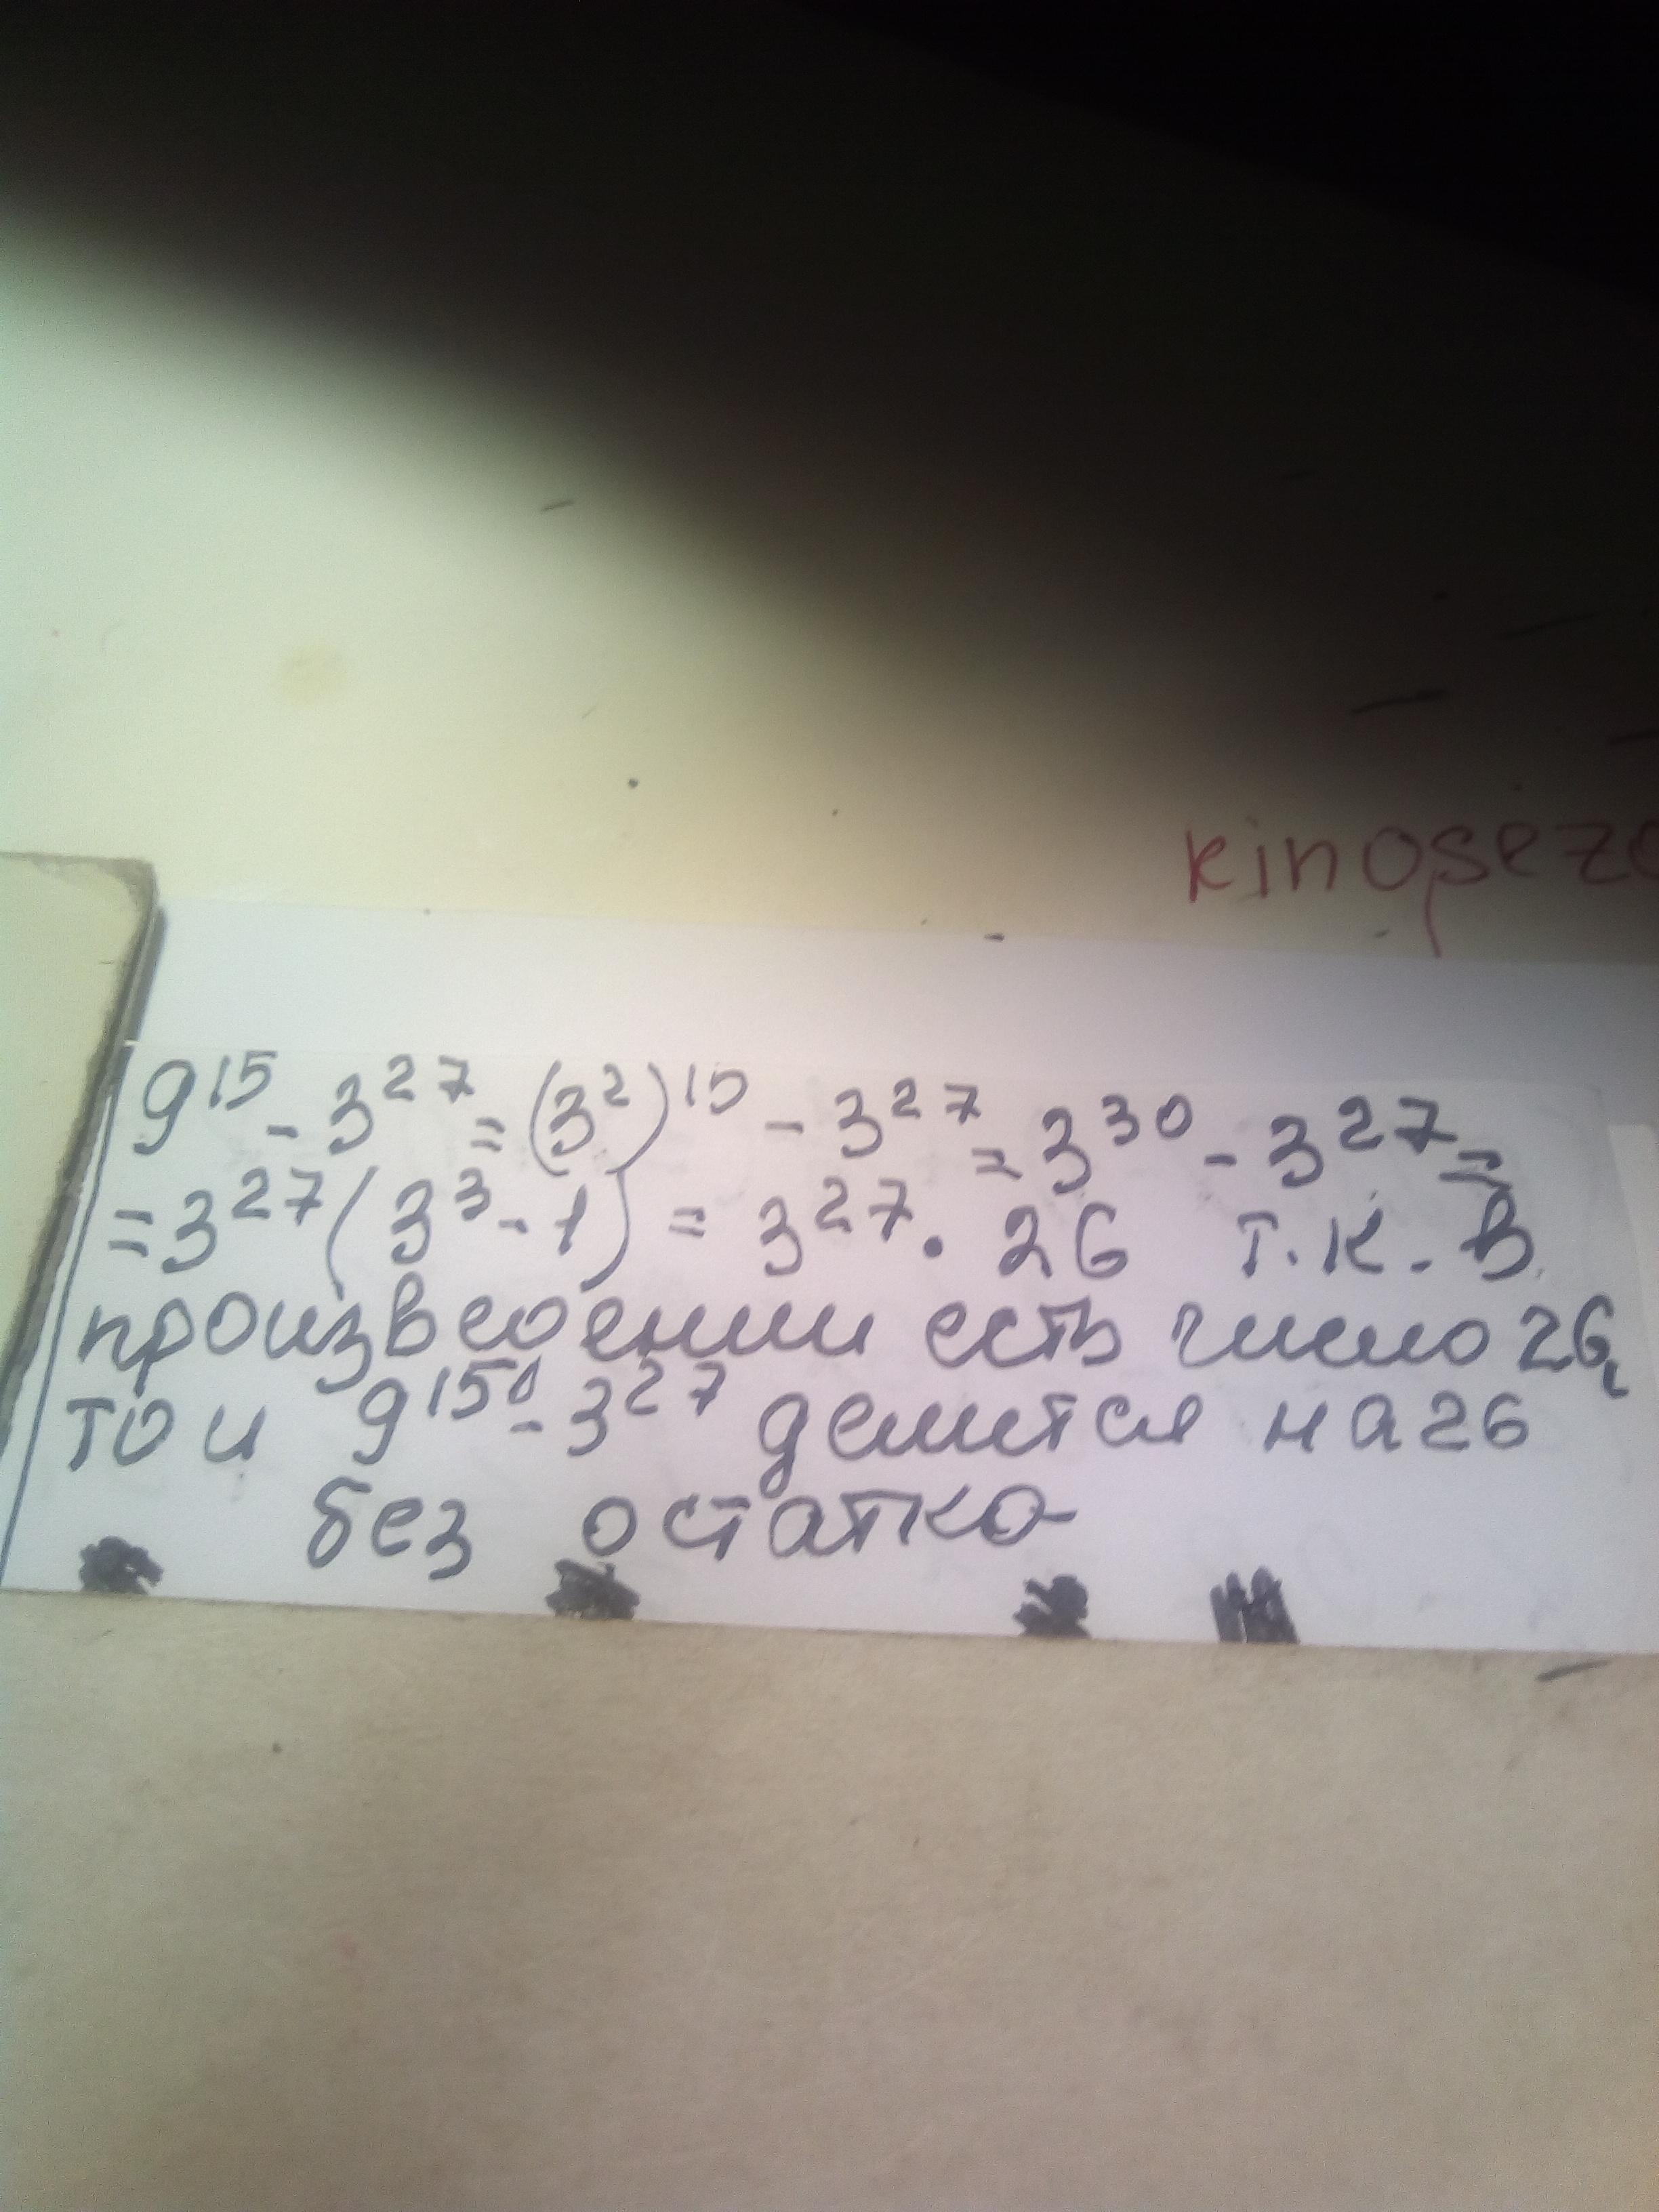 kinosezo
9¹⁵ - 3²⁷ = (3²)¹⁵ - 3²⁷ = 3³⁰ - 3²⁷ =
= 3²⁷ (3³ - 1) = 3²⁷ · 26 т.к. в
произведении есть число 26,
то и 9¹⁵ - 3²⁷ делится на 26
без остатка